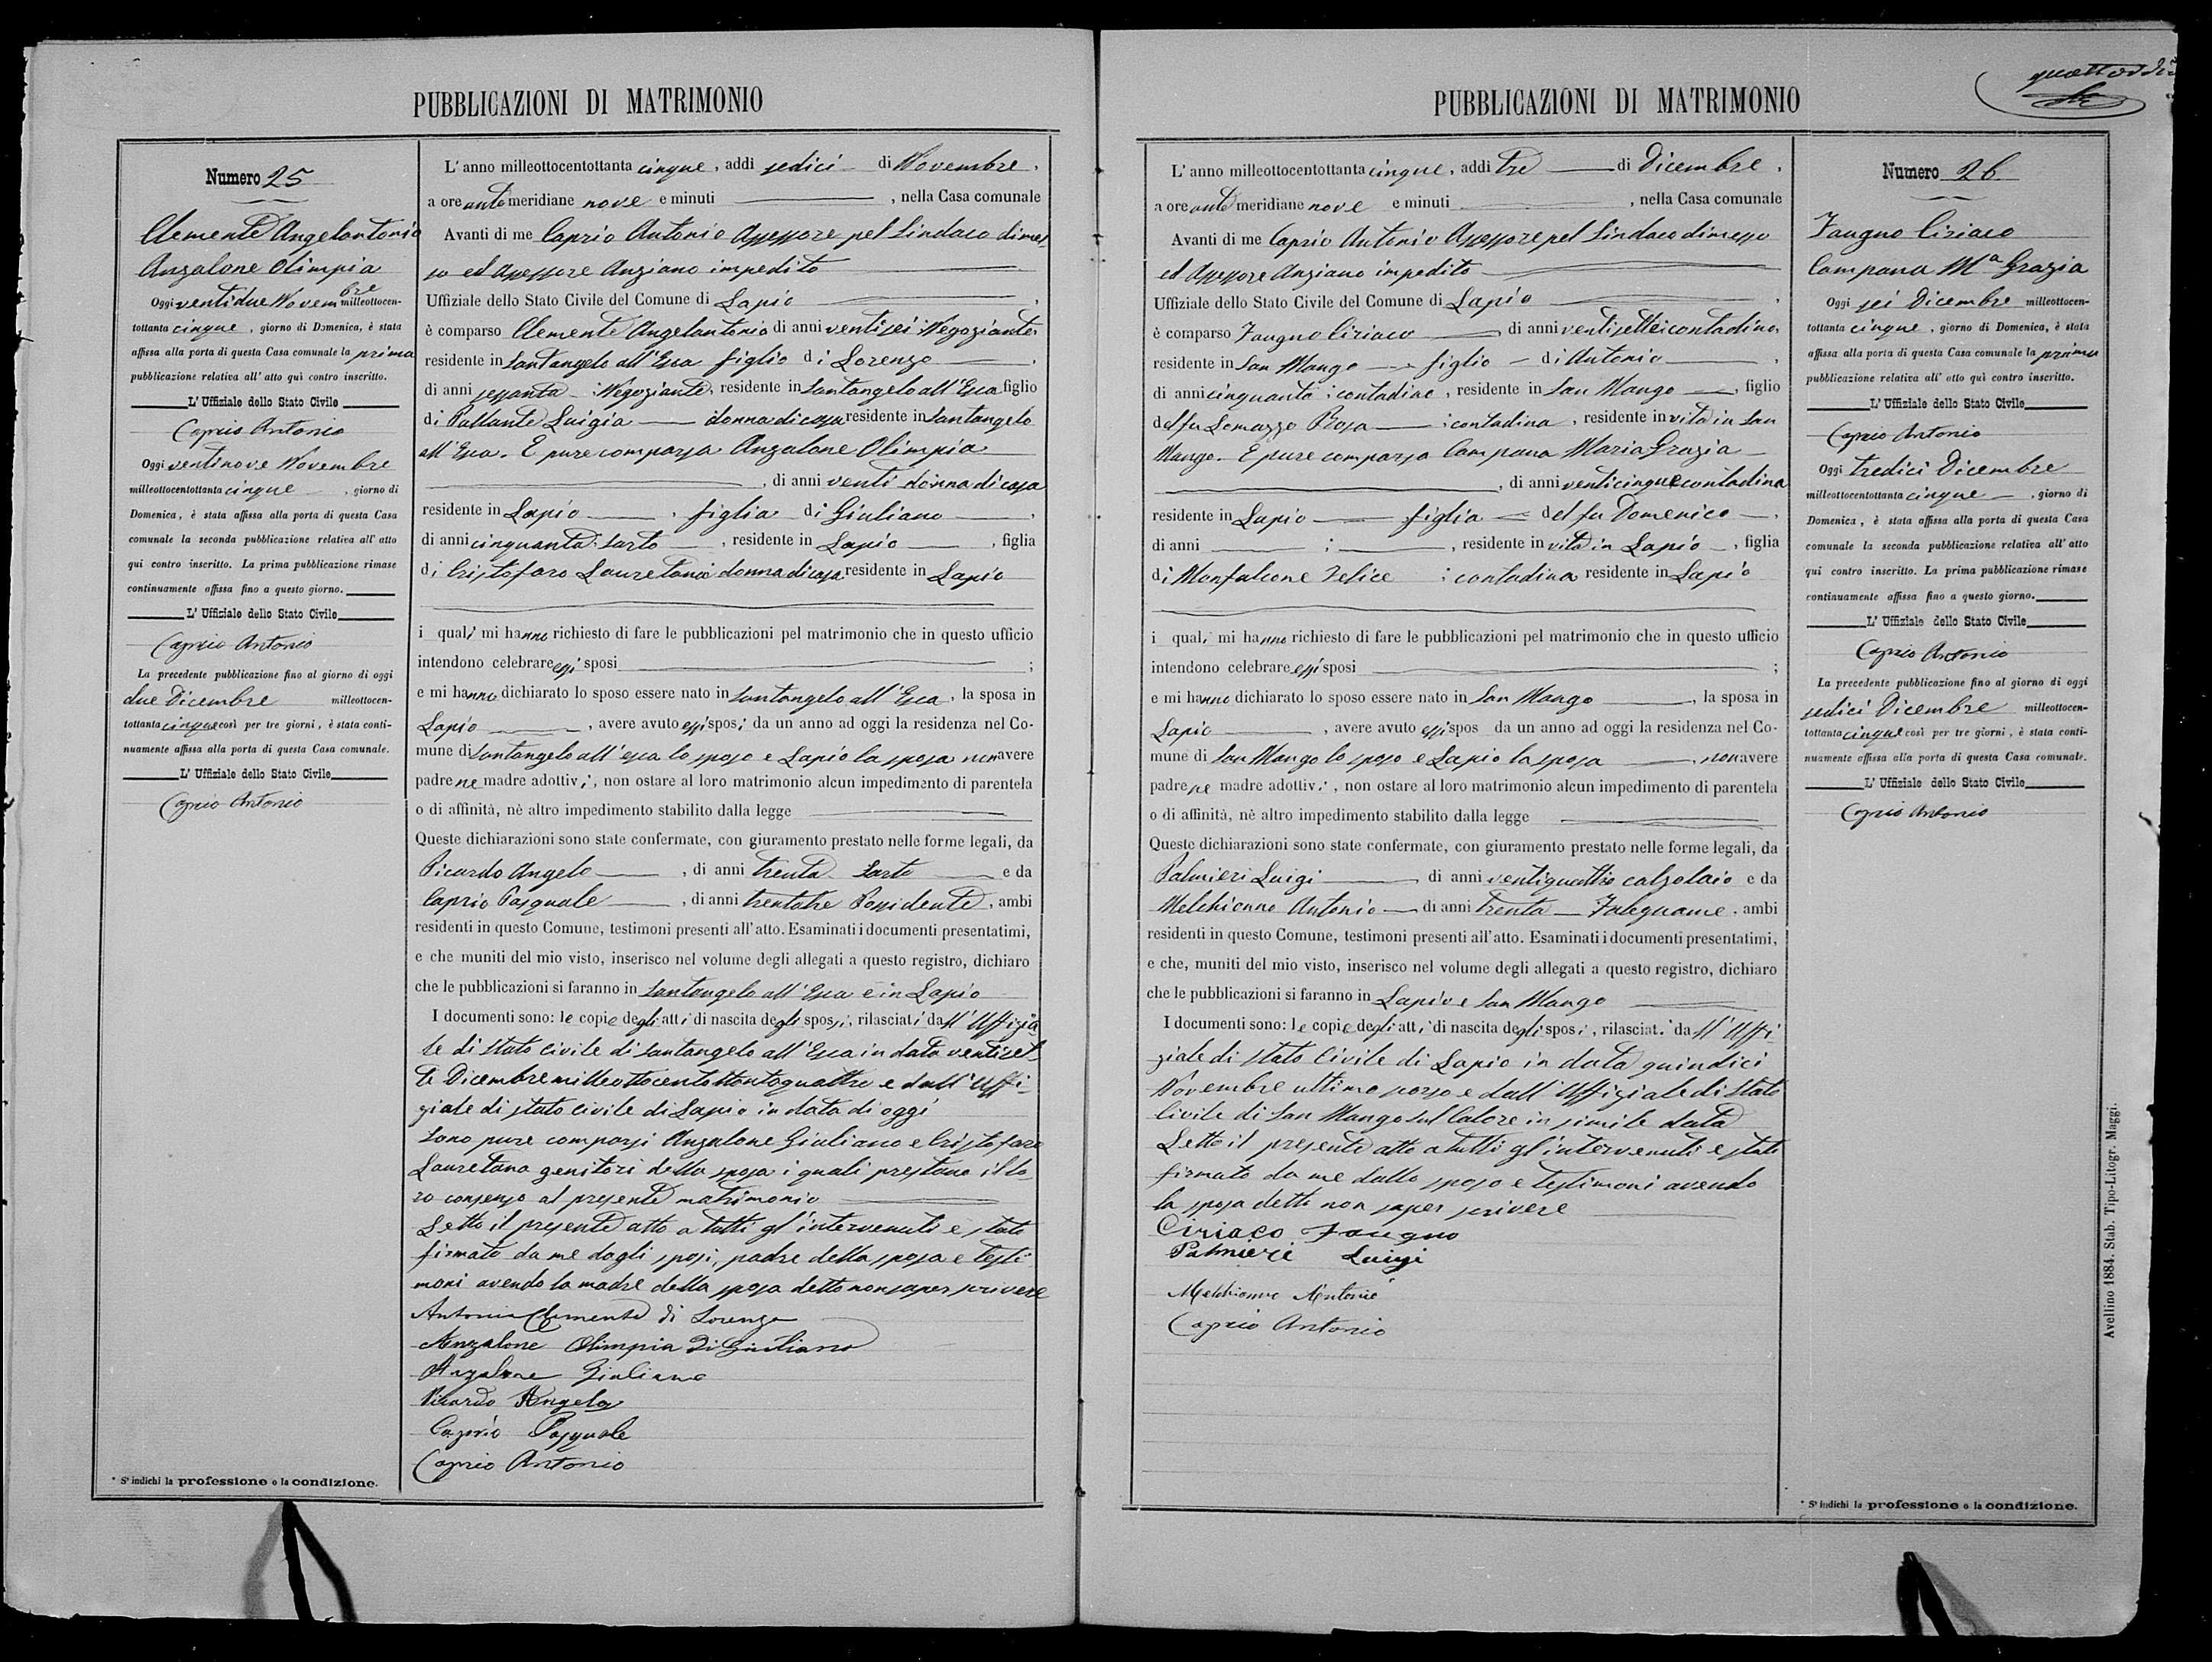 PUBBLICAZIONI DI MATRIMONIO
Numero 25
Clemente Angelantonio
Anzalone Olimpia
Oggi ventidue Novembre milleottocen-
tottanta cinque, giorno di Domenica, è stata
affissa alla porta di questa Casa comunale la prima
pubblicazione relativa all' atto quì contro inscritto.
L' Uffiziale dello Stato Civile
Caprio Antonio
Oggi ventinove Novembre
milleottocentottanta cinque, giorno di
Domenica, è stata affissa alla porta di questa Casa
comunale la seconda pubblicazione relativa all' atto
qui contro inscritto. La prima pubblicazione rimase
continuamente affissa fino a questo giorno.
L' Uffiziale dello Stato Civile
Caprio Antonio
La precedente pubblicazione fino al giorno di oggi
due Dicembre milleottocen-
tottanta cinque così per tre giorni, è stata conti-
nuamente affissa alla porta di questa Casa comunale.
L' Uffiziale dello Stato Civile
Caprio Antonio
* Si indichi la professione o la condizione.
L' anno milleottocentottanta cinque, addì sedici di Novembre,
a ore ante meridiane nove e minuti , nella Casa comunale
Avanti di me Caprio Antonio Assessore pel Sindaco dimes
so ed Assessore Anziano impedito
Uffiziale dello Stato Civile del Comune di Lapio
è comparso Clemente Angelantonio di anni ventisei Negoziante,
residente in Santangelo all'Esca figlio di Lorenzo,
di anni sessanta Negoziante, residente in Santangelo all'Esca figlio
di Pallante Luigia donna di casa residente in Santangelo
all'Esca. E pure comparsa Anzalone Olimpia
, di anni venti donna di casa
residente in Lapio, figlia di Giuliano,
di anni cinquanta sarto, residente in Lapio, figlia
di Cristofaro Lauretana donna di casa residente in Lapio
i quali mi hanno richiesto di fare le pubblicazioni pel matrimonio che in questo ufficio
intendono celebrare essi sposi ;
e mi hanno dichiarato lo sposo essere nato in Santangelo all'Esca, la sposa in
Lapio, avere avuto essi sposi da un anno ad oggi la residenza nel Co-
mune di Santangelo all'esca lo sposo e Lapio la sposa non avere
padre ne madre adottivi, non ostare al loro matrimonio alcun impedimento di parentela
o di affinità, nè altro impedimento stabilito dalla legge
Queste dichiarazioni sono state confermate, con giuramento prestato nelle forme legali, da
Picardo Angelo, di anni trenta Sarto e da
Caprio Pasquale, di anni trentatre Possidente, ambi
residenti in questo Comune, testimoni presenti all' atto. Esaminati i documenti presentatimi,
e che muniti del mio visto, inserisco nel volume degli allegati a questo registro, dichiaro
che le pubblicazioni si faranno in Santangelo all'Esca e in Lapio
I documenti sono: le copie degli atti di nascita degli sposi, rilasciati dall'Uffizia
le di stato civile di Santangelo all'Esca in data ventiset
te Dicembre milleottocentottantaquattro e dall'Uffi-
ziale di stato civile di Lapio in data di oggi
Sono pure comparsi Anzalone Giuliano e Cristofaro
Lauretana genitori della sposa i quali prestano il lo-
ro consenso al presente matrimonio
Letto il presente atto a tutti gl'intervenuti è stato
firmato da me dagli sposi, padre della sposa e testi
moni avendo la madre della sposa detto non saper scrivere
Antonio Clemente di Lorenzo
Anzalone Olimpia di Giuliano
Anzalone Giuliano
Picardo Angelo
Caprio Pasquale
Caprio Antonio
quattordici
PUBBLICAZIONI DI MATRIMONIO
L' anno milleottocentottanta cinque, addì tre di Dicembre,
a ore ante meridiane nove e minuti , nella Casa comunale
Avanti di me Caprio Antonio Assessore pel Sindaco dimesso
ed Assessore Anziano impedito
Uffiziale dello Stato Civile del Comune di Lapio,
è comparso Faugno Ciriaco di anni ventisette contadino,
residente in San Mango figlio di Antonio,
di anni cinquanta contadino, residente in San Mango, figlio
del fu Lomazzo Rosa contadina, residente in vita in San
Mango. E pure comparsa Campana Maria Grazia
, di anni venticinque contadina
residente in Lapio figlia del fu Domenico,
di anni ; , residente in vita in Lapio, figlia
di Monfalcone Felice contadina residente in Lapio
i quali mi hanno richiesto di fare le pubblicazioni pel matrimonio che in questo ufficio
intendono celebrare essi sposi ;
e mi hanno dichiarato lo sposo essere nato in San Mango, la sposa in
Lapio, avere avuto essi spos da un anno ad oggi la residenza nel Co-
mune di San Mango lo sposo e Lapio la sposa, non avere
padre ne madre adottivi, non ostare al loro matrimonio alcun impedimento di parentela
o di affinità, nè altro impedimento stabilito dalla legge
Queste dichiarazioni sono state confermate, con giuramento prestato nelle forme legali, da
Palmieri Luigi di anni ventiquattro calzolaio e da
Melchionno Antonio di anni trenta Falegname, ambi
residenti in questo Comune, testimoni presenti all' atto. Esaminati i documenti presentatimi,
e che, muniti del mio visto, inserisco nel volume degli allegati a questo registro, dichiaro
che le pubblicazioni si faranno in Lapio e San Mango
I documenti sono: le copie degli atti di nascita degli sposi, rilasciati dall'Uffi
ziale di stato Civile di Lapio in data quindici
Novembre ultimo scorso e dall'Uffiziale di Stato
Civile di San Mango sul Calore in simile data
Letto il presente atto a tutti gl'intervenuti è stato
firmato da me dallo sposo e testimoni avendo
la sposa detto non saper scrivere
Ciriaco Faugno
Palmieri Luigi
Melchionno Antonio
Caprio Antonio
Numero 26
Faugno Ciriaco
Campana Mª Grazia
Oggi sei Dicembre milleottocen-
tottanta cinque, giorno di Domenica, è stata
affissa alla porta di questa Casa comunale la prima
pubblicazione relativa all' atto quì contro inscritto.
L' Uffiziale dello Stato Civile
Caprio Antonio
Oggi tredici Dicembre
milleottocentottanta cinque, giorno di
Domenica, è stata affissa alla porta di questa Casa
comunale la seconda pubblicazione relativa all' atto
qui contro inscritto. La prima pubblicazione rimase
continuamente affissa fino a questo giorno.
L' Uffiziale dello Stato Civile
Caprio Antonio
La precedente pubblicazione fino al giorno di oggi
sedici Dicembre milleottocen-
tottanta cinque così per tre giorni, è stata conti-
nuamente affissa alla porta di questa Casa comunale.
L' Uffiziale dello Stato Civile
Caprio Antonio
* Si indichi la professione o la condizione.
Avellino 1884. Stab. Tipo-Litogr. Maggi.